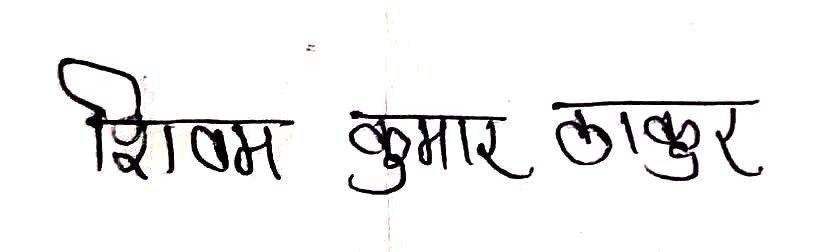 शिवम कुमार ठाकुर